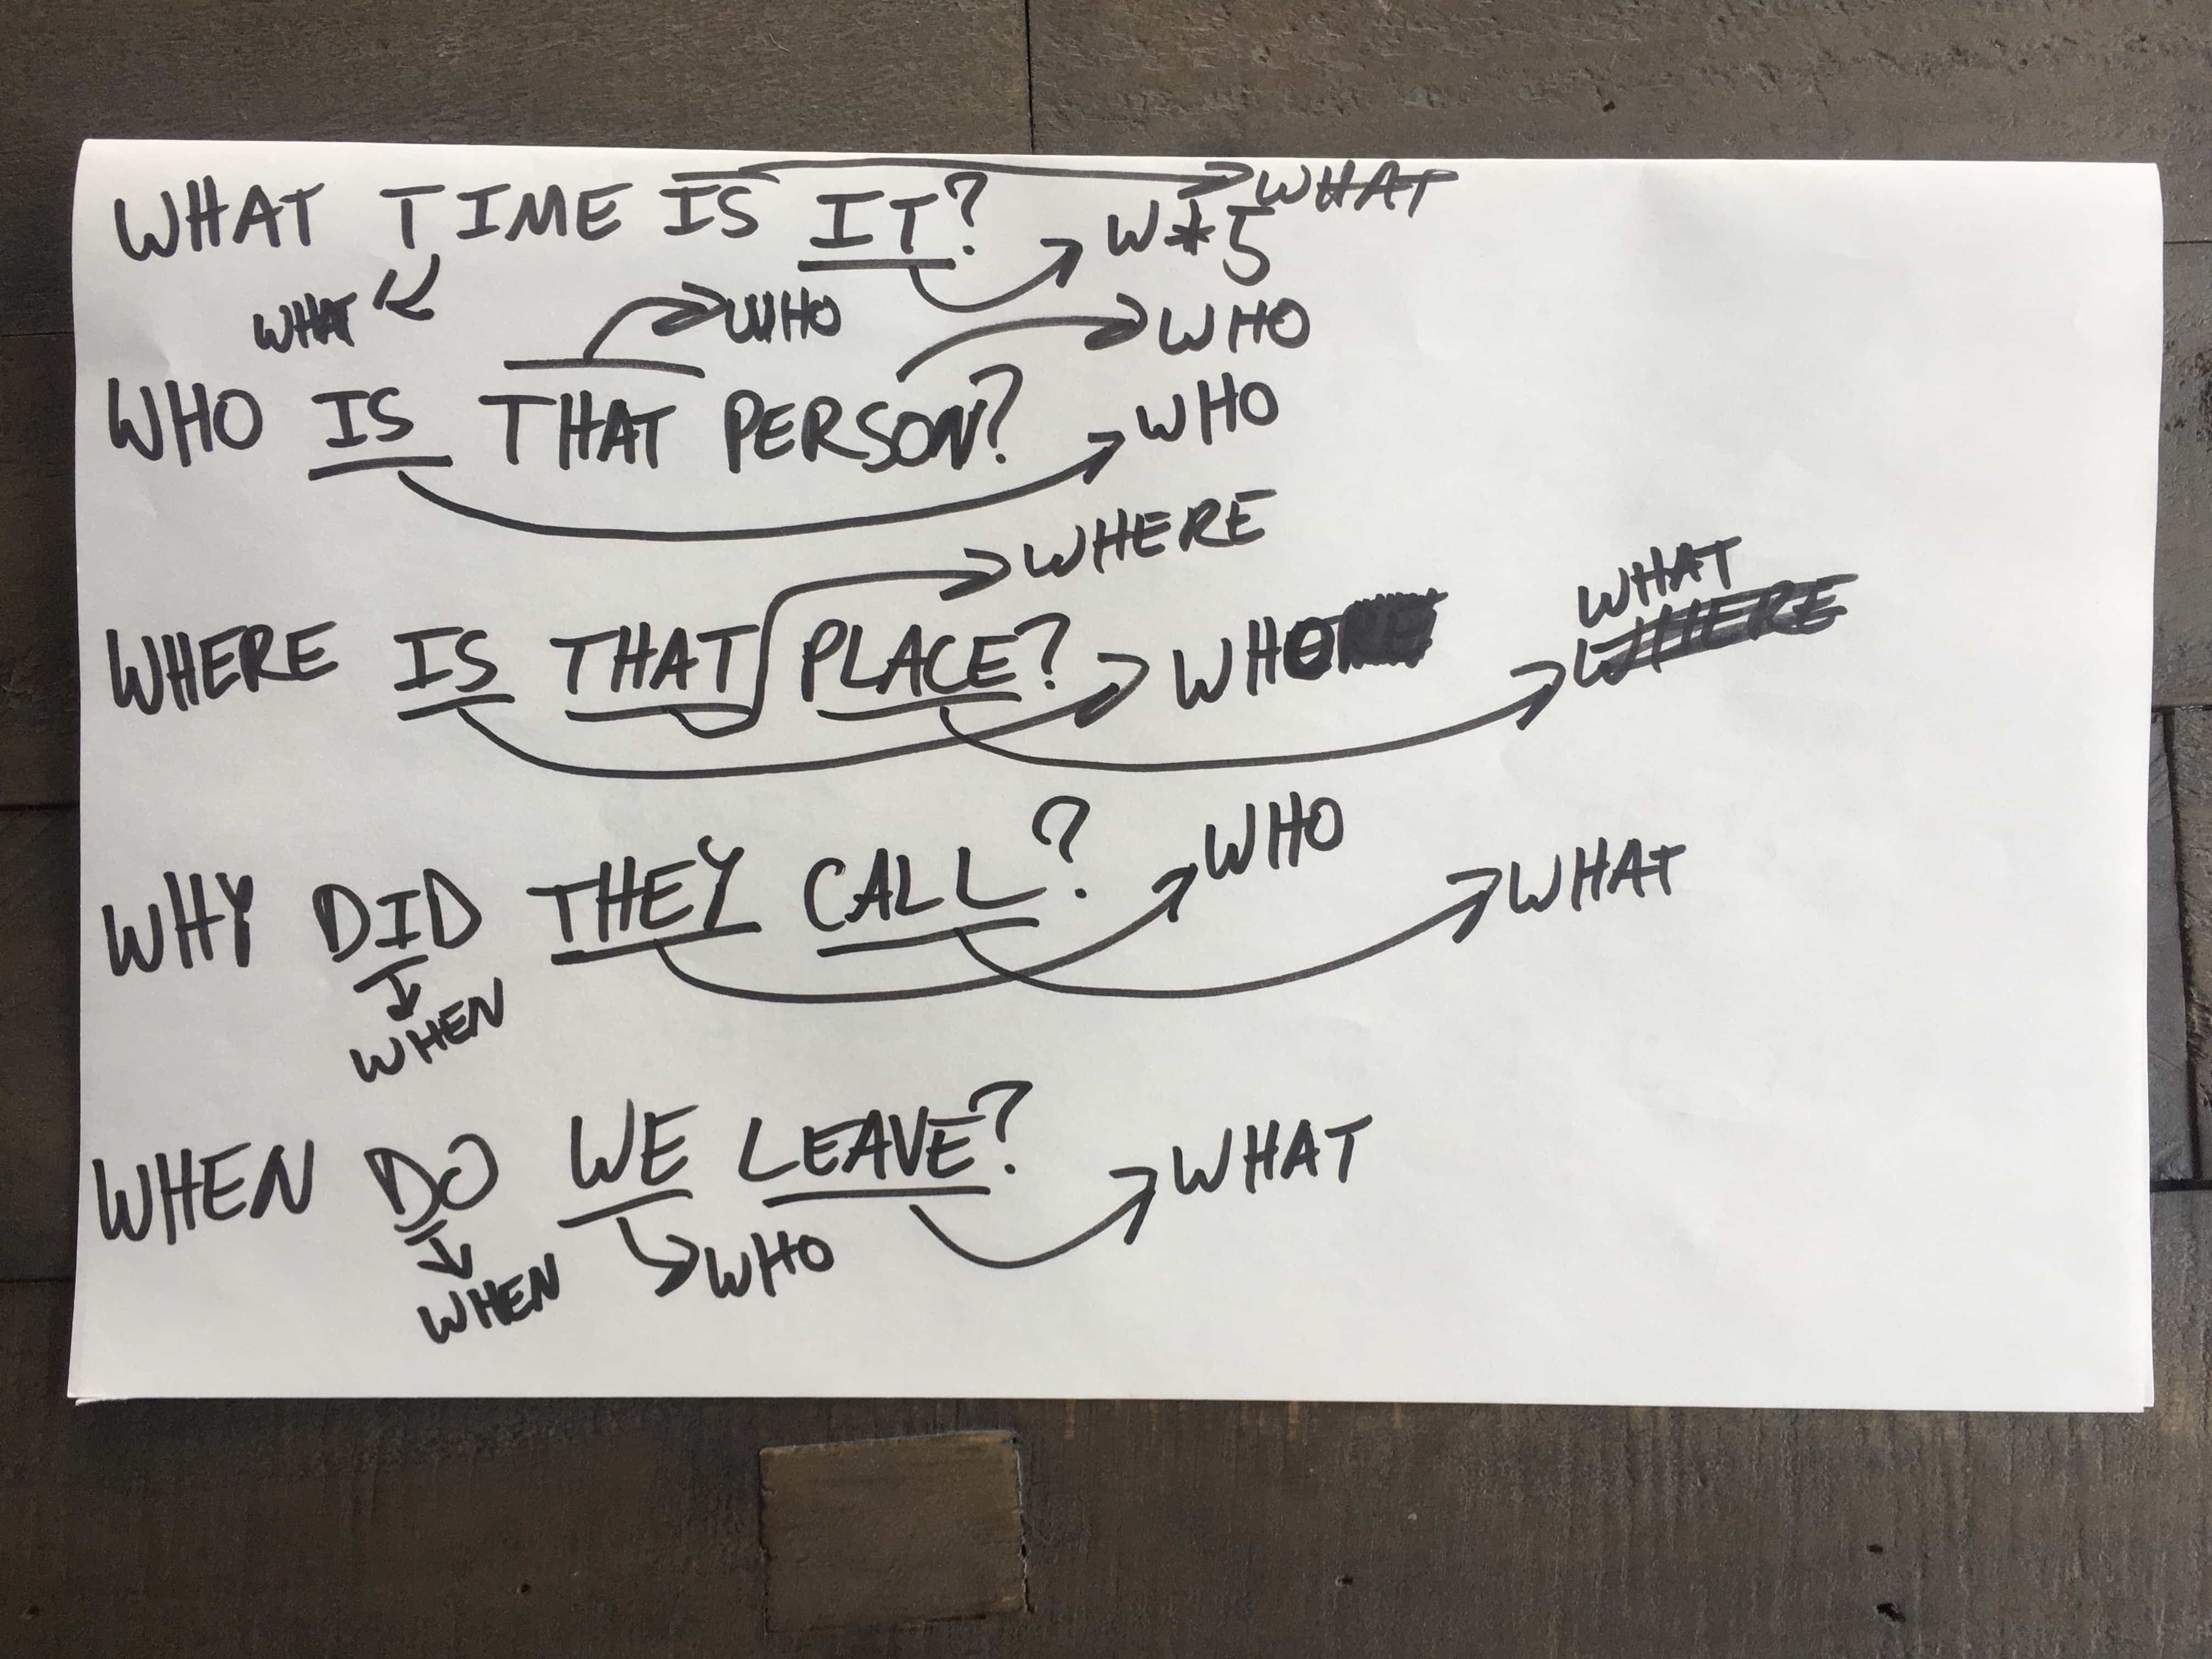 WHAT
WHAT TIME IS IT? W*5
WHAT WHO WHO
WHO IS THAT PERSON? WHO
WHERE
WHAT
WHERE IS THAT PLACE? WHO WHERE
WHO
WHY DID THEY CALL? WHAT
WHEN
WHEN DO WE LEAVE? WHAT
WHEN WHO